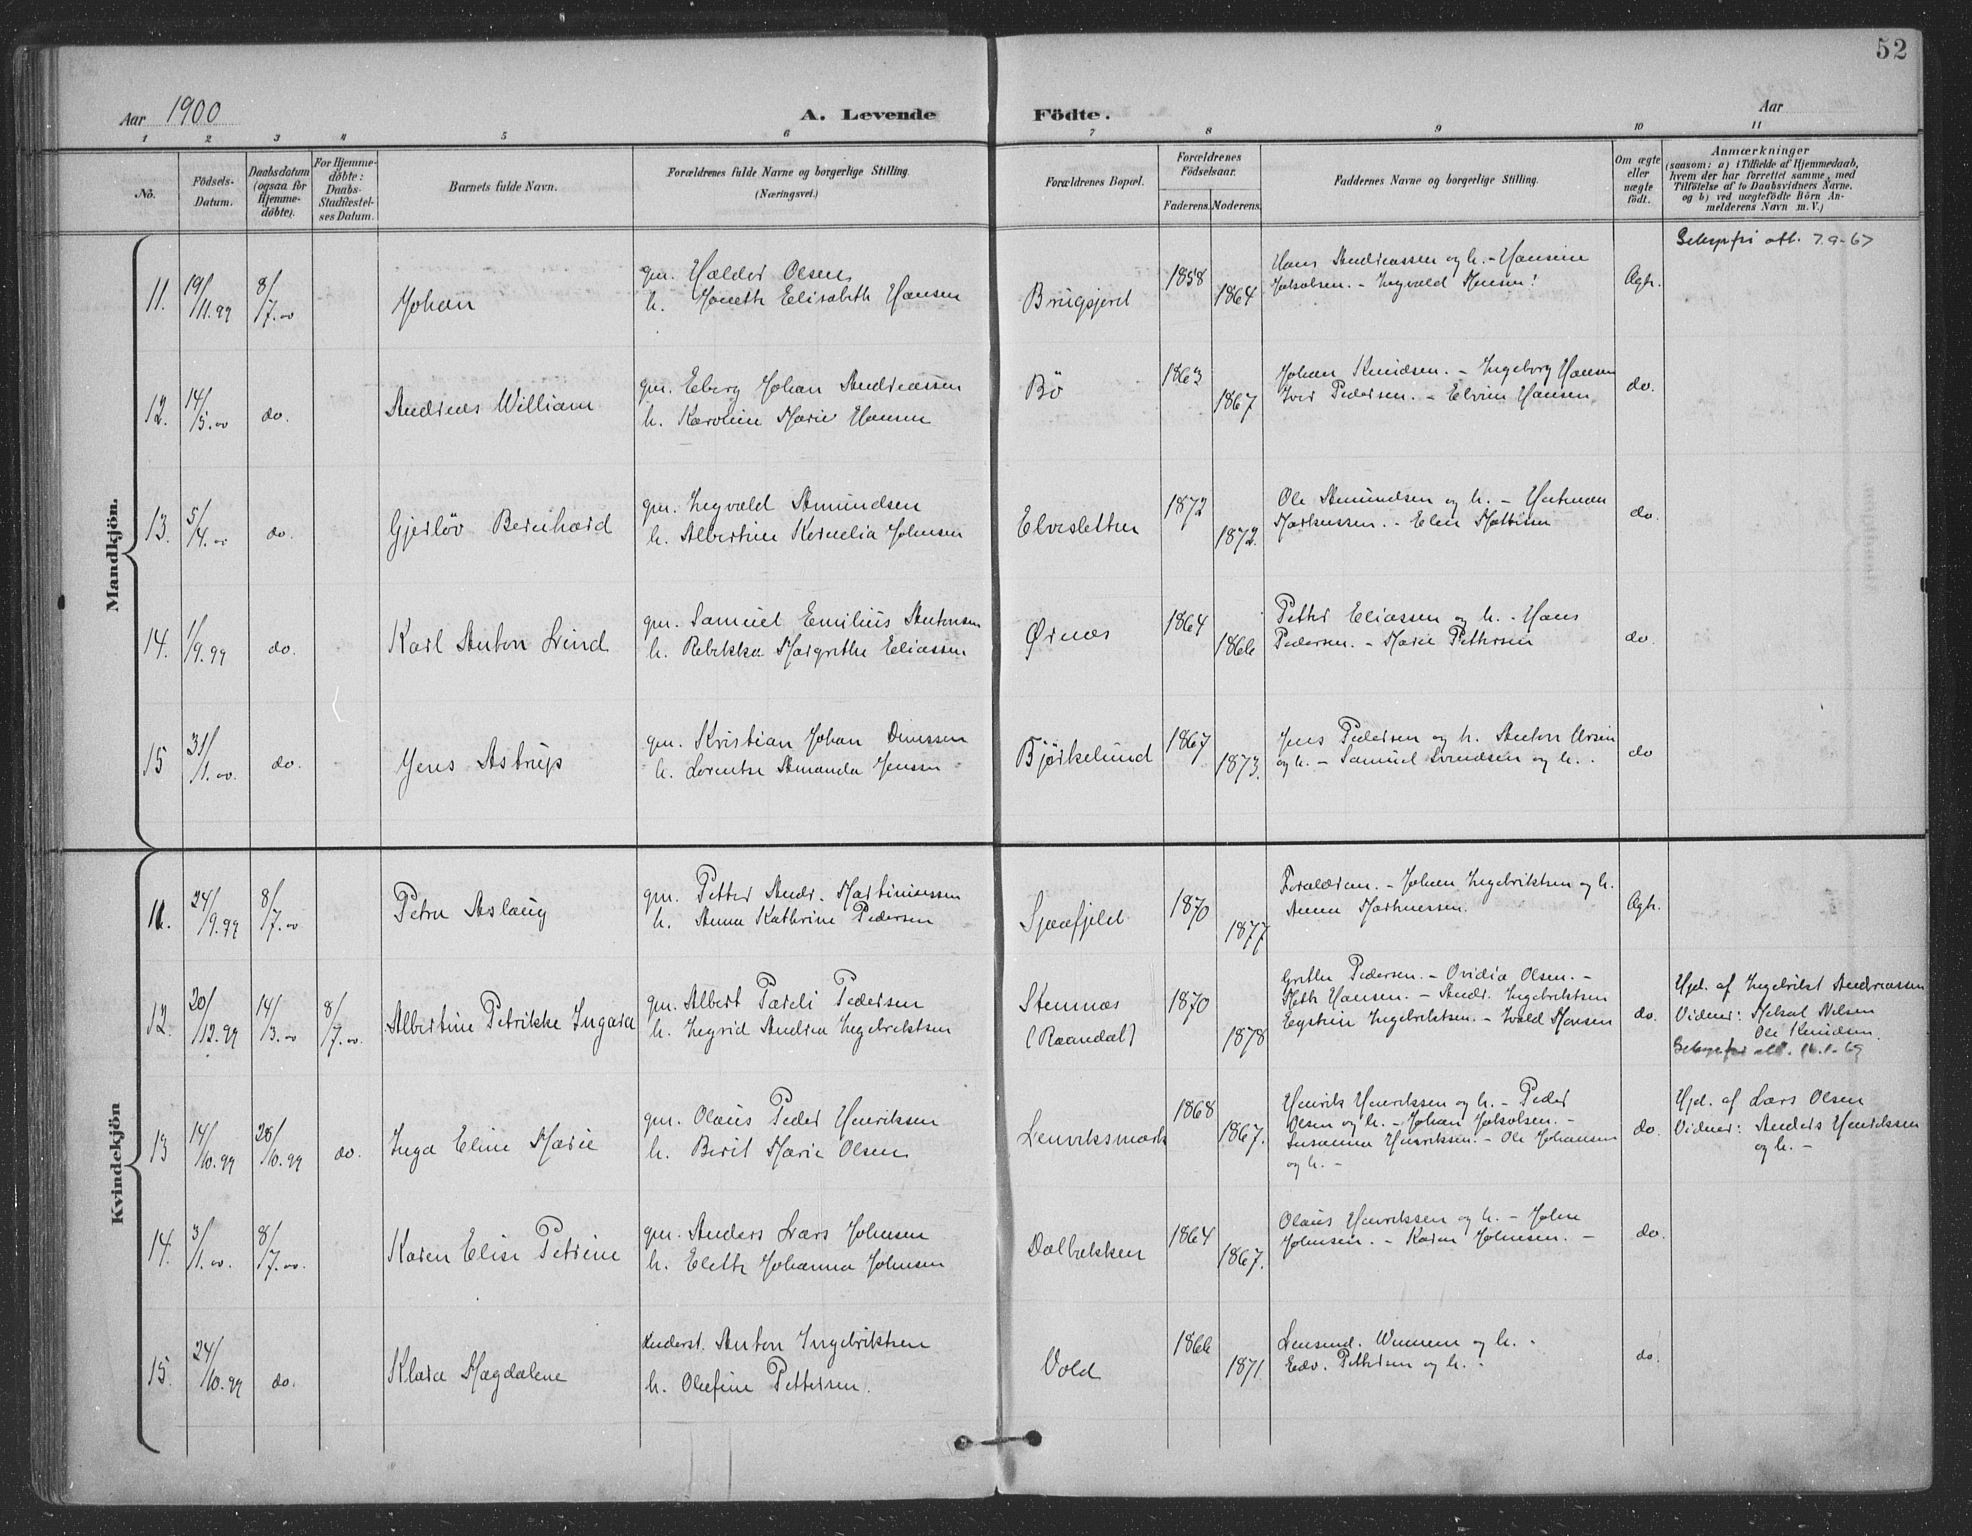 52
Aar 1900
A. Levende Födte.
Aar
1 2 3 4 5 6 7 8 9 10 11
No.
Födsels-
Datum.
Daabsdatum
(ogsaa for
Hjemme-
döbte).
For Hjemme-
döbte:
Daabs-
Stadfæstel-
ses Datum.
Barnets fulde Navn.
Forældrenes fulde Navne og borgerlige Stilling.
(Næringsvei.)
Forældrenes Bopæl.
Forældrenes
Födselsaar.
Faderens. Moderens.
Faddernes Navne og borgerlige Stilling.
Om ægte
eller
uægte
födt.
Anmærkninger
(saasom: a) i Tilfælde af Hjemmedaab,
hvem der har forrettet samme, med
Tilföielse af to Daabsvidners Navne.
og b) ved uægtefödte Börn An-
melderens Navn m. V.)
Mandkjön.
11. 19/11.99 8/7.00 Johan
gm. Halder Olsen
h. Joneth Elisabeth Hansen
Brugsjord 1858 1864
Hans Andreassen og h. - Hansine
- Ingvald Jensen!
Ægt.
7.9-67
12. 14/5.00 do. Andreas William
gm. Eberg Johan Andreassen
h. Karoline Marie Hansen
Bö 1863 1867
Johan Knudsen. - Ingeborg Hansen
Iver Pedersen. - Elvine Hansen
do.
13. 5/4.00 do. Gjerløv Bernhard
gm. Ingvald Amundsen
h. Albertine Kornelia Johnsen
Elvesletten 1872 1872.
Ole Amundsen og h. -
Markussen. - Elen
do.
14. 1/9.99 do. Karl Anton Lind
gm. Samuel Emilius Antonsen
h. Rebekka Margrethe Eliassen
Ørnæs 1864 1866
Petter Eliassen og h. - Hans
Pedersen. - Marie Pettersen
do.
15 31/1.00. do. Jens Astrup
gm. Kristian Johan Dinessen
h. Lorentse Amanda Jensen
Bjørkelund 1867 1873.
Jens Pedersen og h. Anton
og h. - Samuel Svendsen og h.
do
Kvindekjön
11. 24/9.99 8/7.00 Petra Aslaug
gm. Petter Andr. Martiniussen
h. Anna Kathrine Pedersen
Spaafjeld 1870 1877
Forældrene. - Johan Ingebriktsen og h.
Anna Markussen.
Ægt.
12. 20/12.99 14/3.00 8/7.00. Albertine Petrikke Ingara
gm. Albert Pareli Pedersen
h. Ingrid Andrea Ingebriktsen
Stennæs
(Raandal) 1870 1878
Grethe Pedersen. - Ovidia Olsen. -
Meth Hansen. - Andr. Ingebriktsen
Ingebriktsen. - Hansen
do.
Hjd. af Ingebrikt Andreassen
Vidner: Nilsen
Ole Knudsen
16.1-69
13 14/10.99 28/10.99 do. Inga Eline Marie
gm. Olaus Peder Henriksen
h. Berit Marie Olsen
Lenviksmark 1868 1867.
Henrik Henriksen og h. - Peder
Olsen og h. - Johan -
Susanna Henriksen. - Ole Johansen
og h. -
do.
Hjd. af Lars Olsen
Vidner: Anders Henriksen
og h. -
14. 3/1.00. 8/7.00. Karen Elise Petrine
gm. Anders Lars Johnsen
h. Eleth Johanna Johnsen
Dalbækken 1864 1867.
Olaus Henriksen og h. - John
Johnsen. - Karen Johnsen. -
do.
15. 24/10.99 do. Klara Magdalene
Anton Ingebriktsen
h. Olefine Pettersen.
Vold 1866 1871.
og h. -
Edv. Pettersen og h. -
do.